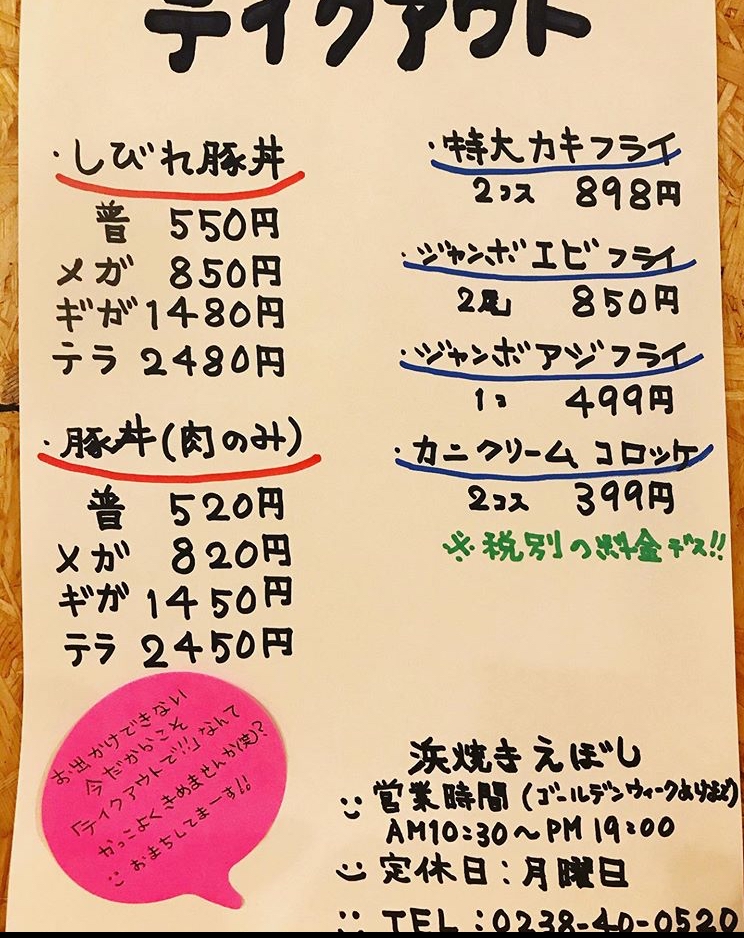 テイクアウト
・しびれ豚丼
普 550円
メガ 850円
ギガ 1480円
テラ 2480円
・豚丼(肉のみ)
普 520円
メガ 820円
ギガ 1450円
テラ 2450円
・特大カキフライ
2コス 898円
・ジャンボエビフライ
2尾 850円
・ジャンボアジフライ
1コ 499円
・カニクリームコロッケ
2コス 399円
※税別の料金デス!!
お出かけできない
今だからこそ
「テイクアウトで!!」なんて
かっこよくきめませんか(笑)?
おまちしてまーす!!
浜焼きえぼし
営業時間(ゴールデンウィークあけまで)
AM10:30〜PM 19:00
定休日:月曜日
TEL:0238-40-0520